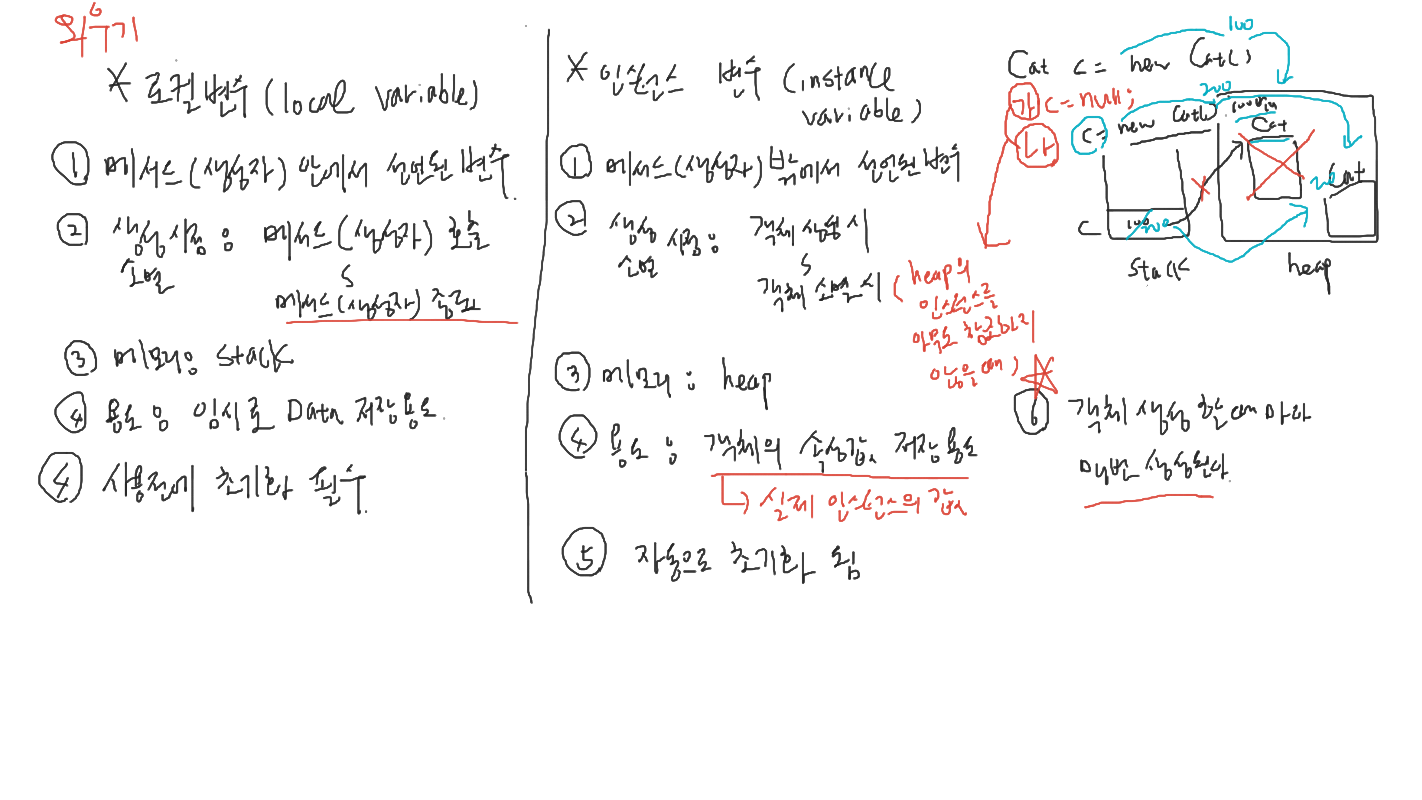 외우기
* 로컬변수 (local variable)
① 메서드(생성자) 안에서 선언된 변수
② 생성 시점 : 메서드(생성자) 호출
소멸
메서드(생성자) 종료
③ 메모리: stack
④ 용도 : 임시로 Data 저장용도.
④ 사용전에 초기화 필수.
* 인스턴스 변수 (instance
variable)
① 메서드(생성자) 밖에서 선언된 변수
② 생성 시점: 객체 생성 시
소멸
객체 소멸 시 (heap의
인스턴스를
아무도 참조하지
않을 때)
③ 메모리 : heap
④ 용도 : 객체의 속성값 저장용도
→ 실제 인스턴스의 값
⑤ 자동으로 초기화 됨
100
Cat c = new Cat()
가 c = null;
200
나 c = new Cat()
100번지
Cat
200 Cat
c 100 200
stack heap
⑥ 객체 생성 할 때 마다
매번 생성된다.